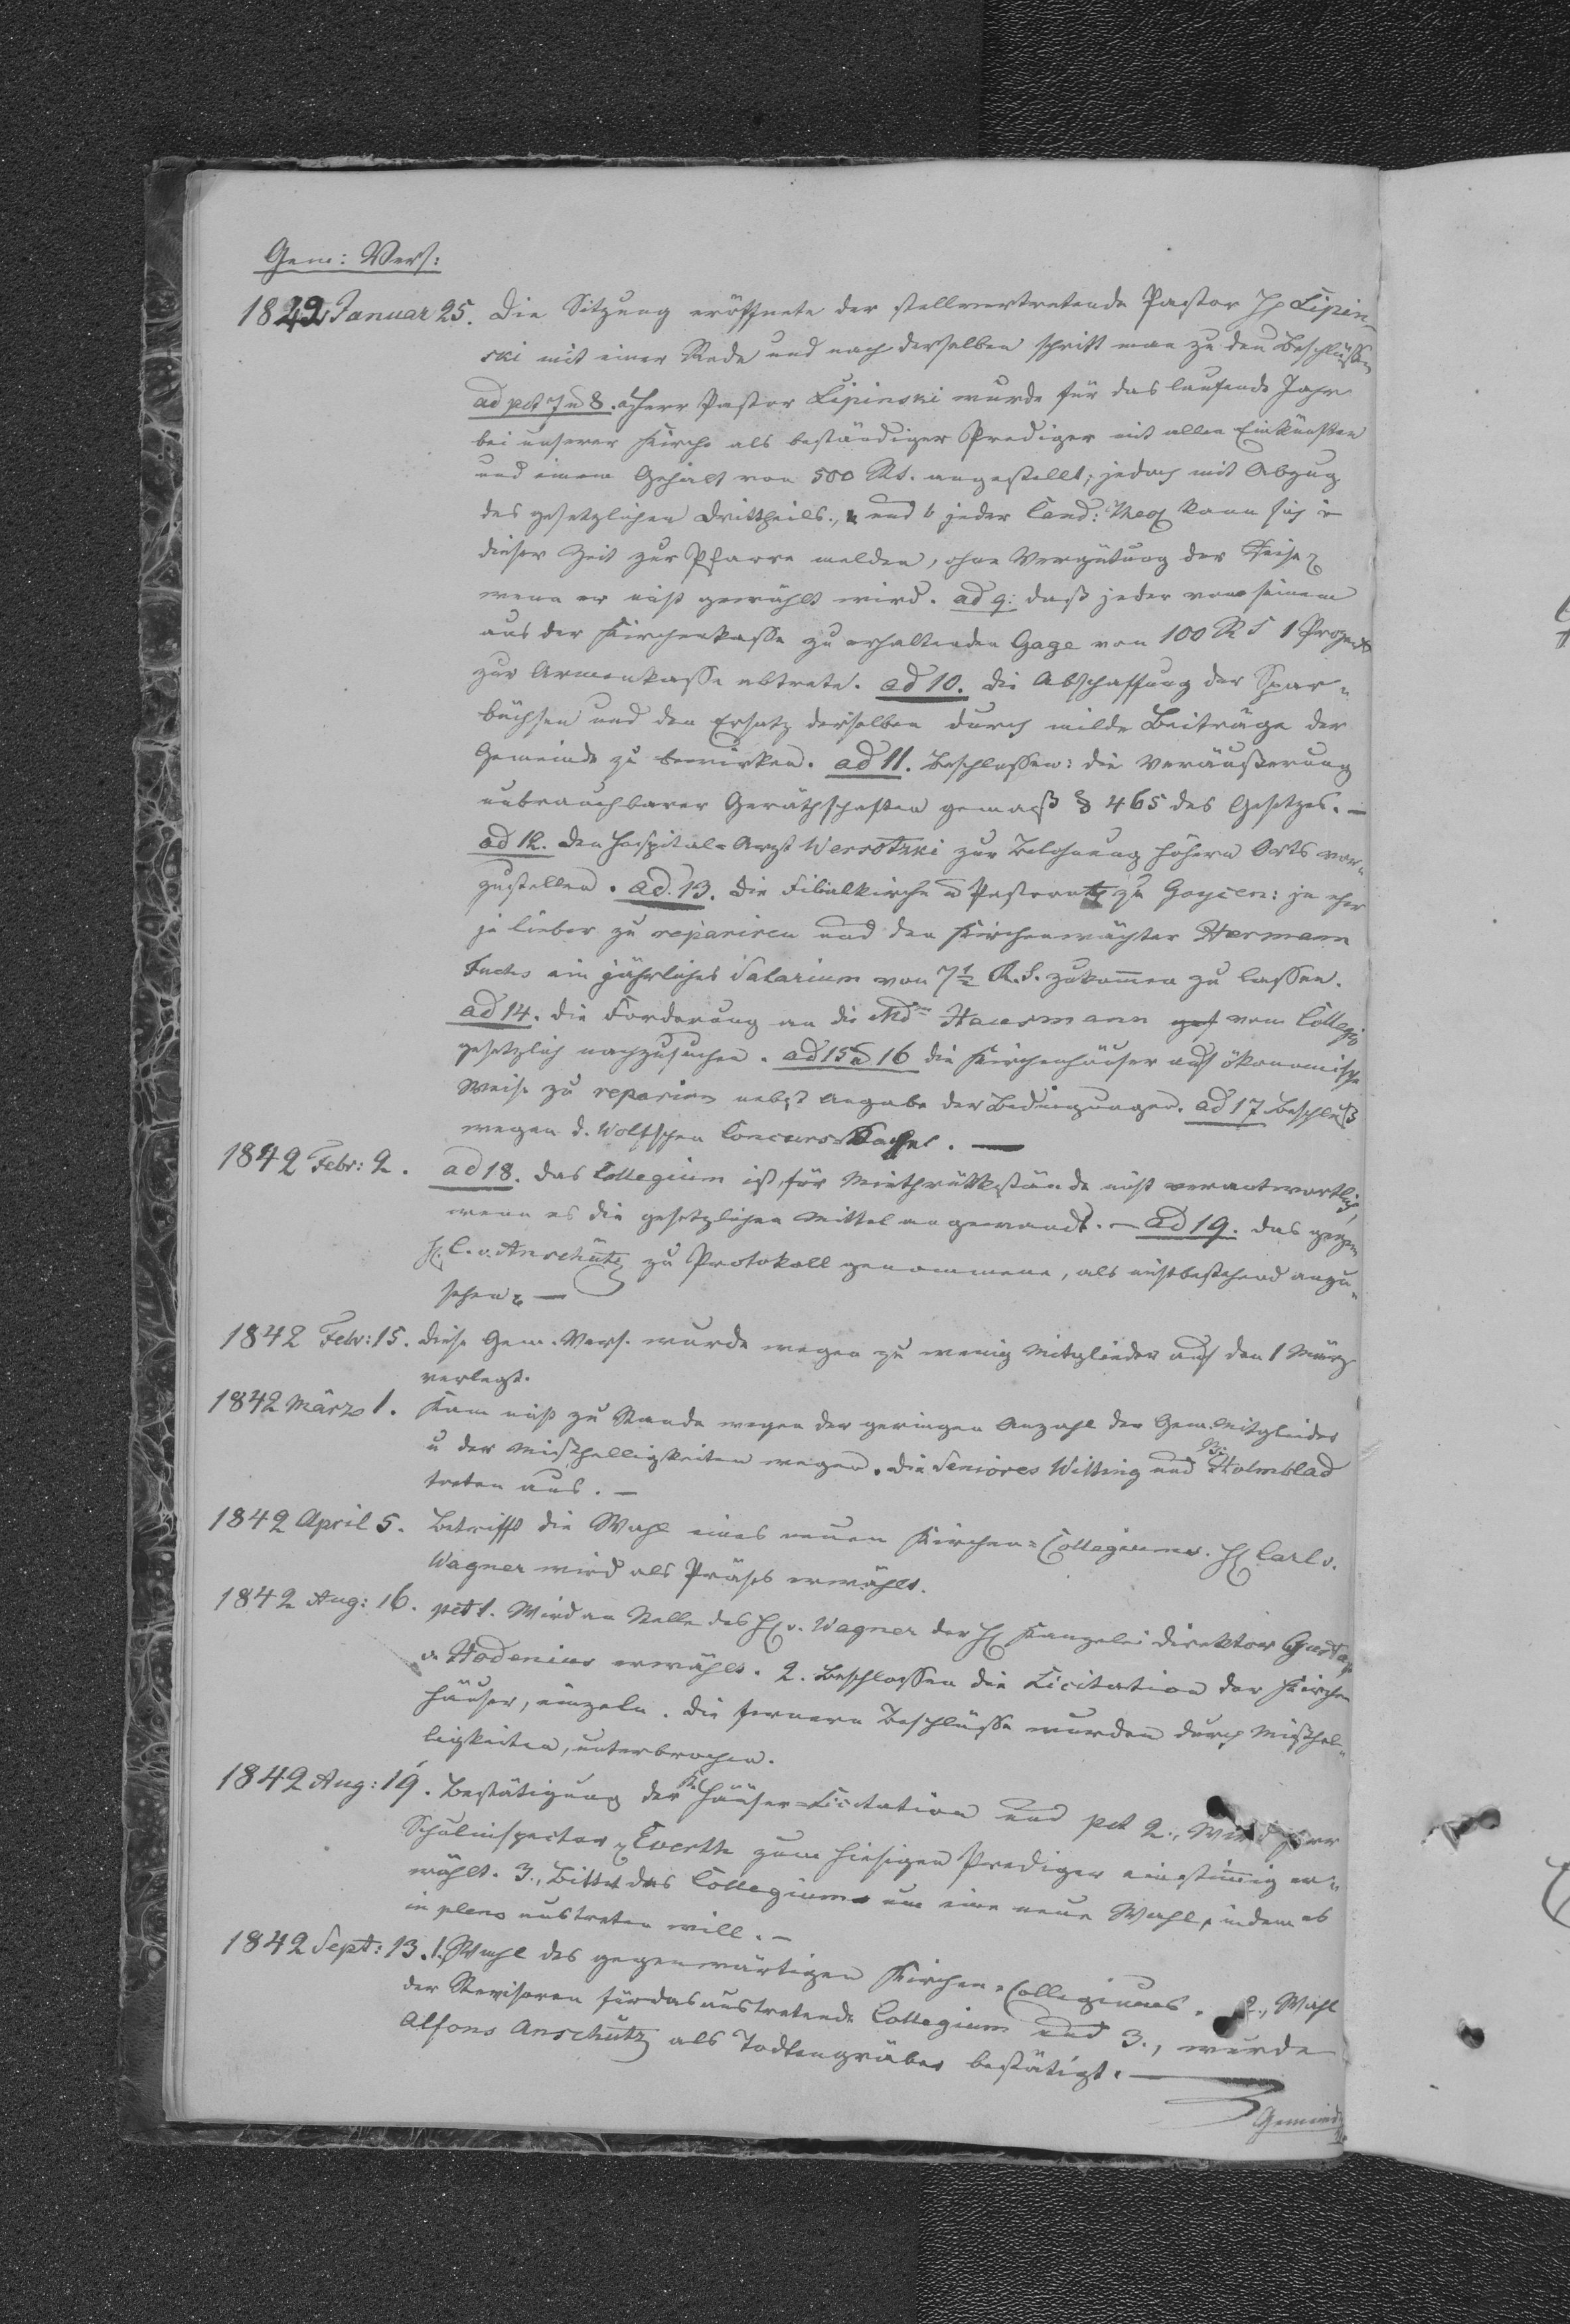 Gem: Vers:
1842 Januar 25. Die Sitzung eröffnete der stellvertretende Pastor H Lipin-
ski mit einer Rede und nach derselben schritt man zu den Beschlüssen
ad pct 7 u 8. a Herr Pastor Lipinski wurde für das laufende Jahr
bei unserer Kirche als beständiger Prediger mit allen Einkünften
und einem Gehalt von 500 Rs. angestellt; jedoch mit Abzug
des gesetzlichen Drittheils., und b jeder Cand: Theol kann sich in
dieser Zeit zur Pfarre melden, ohne Vergütung der Reise
wenn er nicht gewählt wird. ad 9: daß jeder von seinem
aus der Kirchenkasse zu erhaltenden Gage von 100 R S 1 Prozent
zur Armenkasse abtrete. ad 10. die Abschaffung der Spar-
büchsen und den Ersatz derselben durch milde Beiträge der
Gemeinde zu bewirken. ad 11. Beschlossen: die Veräußerung
unbrauchbarer Geräthschaften gemäß § 465 des Gesetzes. —
ad 12. den Hospital-Arzt Wersotzki zur Belohnung höhern Orts vor-
zustellen. ad. 13. Die Filialkirche u Pastorat zu Goycen: je eher
je lieber zu repariren und den Kirchenwächter Hermann
Fuchs ein jährliches Salarium von 7½ R. S. zukommen zu lassen.
ad 14. die Forderung an die Md Hausmann vom Collegio
gesetzlich nachzusuchen. ad 15 u 16 die Kirchenhäuser auf ökonomische
Weise zu repariren nebst Angabe der Bedingungen. ad 17 Beschluß
wegen d. Wolfschen Concurs. —
1842 Febr: 2. ad 18. das Collegium ist für Miethrückstände nicht verantwortlich,
wenn es die gesetzlichen Mittel angewandt. — ad 19. das gegen
H. C. v. Anschütz zu Protokoll genommene, als nichtbestehend anzu-
sehen —
1842 Febr: 15. Diese Gem. Vers. wurde wegen zu wenig Mitglieder auf den 1 März
verlegt.
1842 März 1. Kam nicht zu Stande wegen der geringen Anzahl der Gem. Mitglieder
u der Mißhelligkeiten wegen. Die Seniores Witting und Holmblad
treten aus. —
1842 April 5. Betrifft die Wahl eines neuen Kirchen-Collegiums. H Carl v.
Wagner wird als Präses erwählt.
1842 Aug: 16. pct 1. Wird an Stelle des H v. Wagner der H Kanzelei Direktor Gustav
v Hodenius erwählt. 2. Beschlossen die Licitation der Kirchen
häuser, einzeln. Die fernern Beschlüsse wurden durch Mißhel-
ligkeiten, unterbrochen.
1842 Aug: 19. Bestätigung der Häuser-Licitation und pct 2., Wird Herr
Schulinspector Everth zum hiesigen Prediger einstimmig er-
wählt. 3., Bittet das Collegium um eine neue Wahl, indem es
in pleno austreten will. —
1842 Sept: 13. 1. Wahl des gegenwärtigen Kirchen-Collegiums. 2., Wahl
der Revisoren für das austretende Collegium und 3., wurde
Alfons Anschütz als Todtengräber bestätigt. —
Gemeind